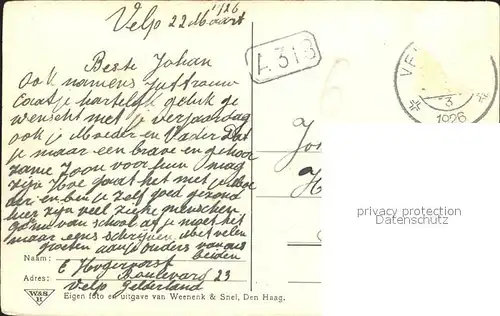 Velp 22 Maart 1926
Beste Johan
Ook namens Juffrouw
Caatje hartelijk geluk ge
wenscht met je verjaardag
ook je Moeder en Vader Dat
je maar een brave en gehoor
zame Zoon voor hun mag
zijn Hoe gaat het met je Moe
der en ben je zelf goed gezond
hier zijn veel zieke menschen
van school als je moet het
maar eens schrijven Met velen
groeten aan je ouders van ons
beiden
Naam: E Hogervorst
Adres: Boulevard 23
Velp Gelderland
W&S
H
Eigen foto en uitgave van Weenenk & Snel, Den Haag.
A 313
VE
3
1926
Jo
H
privacy protection
Datenschutz